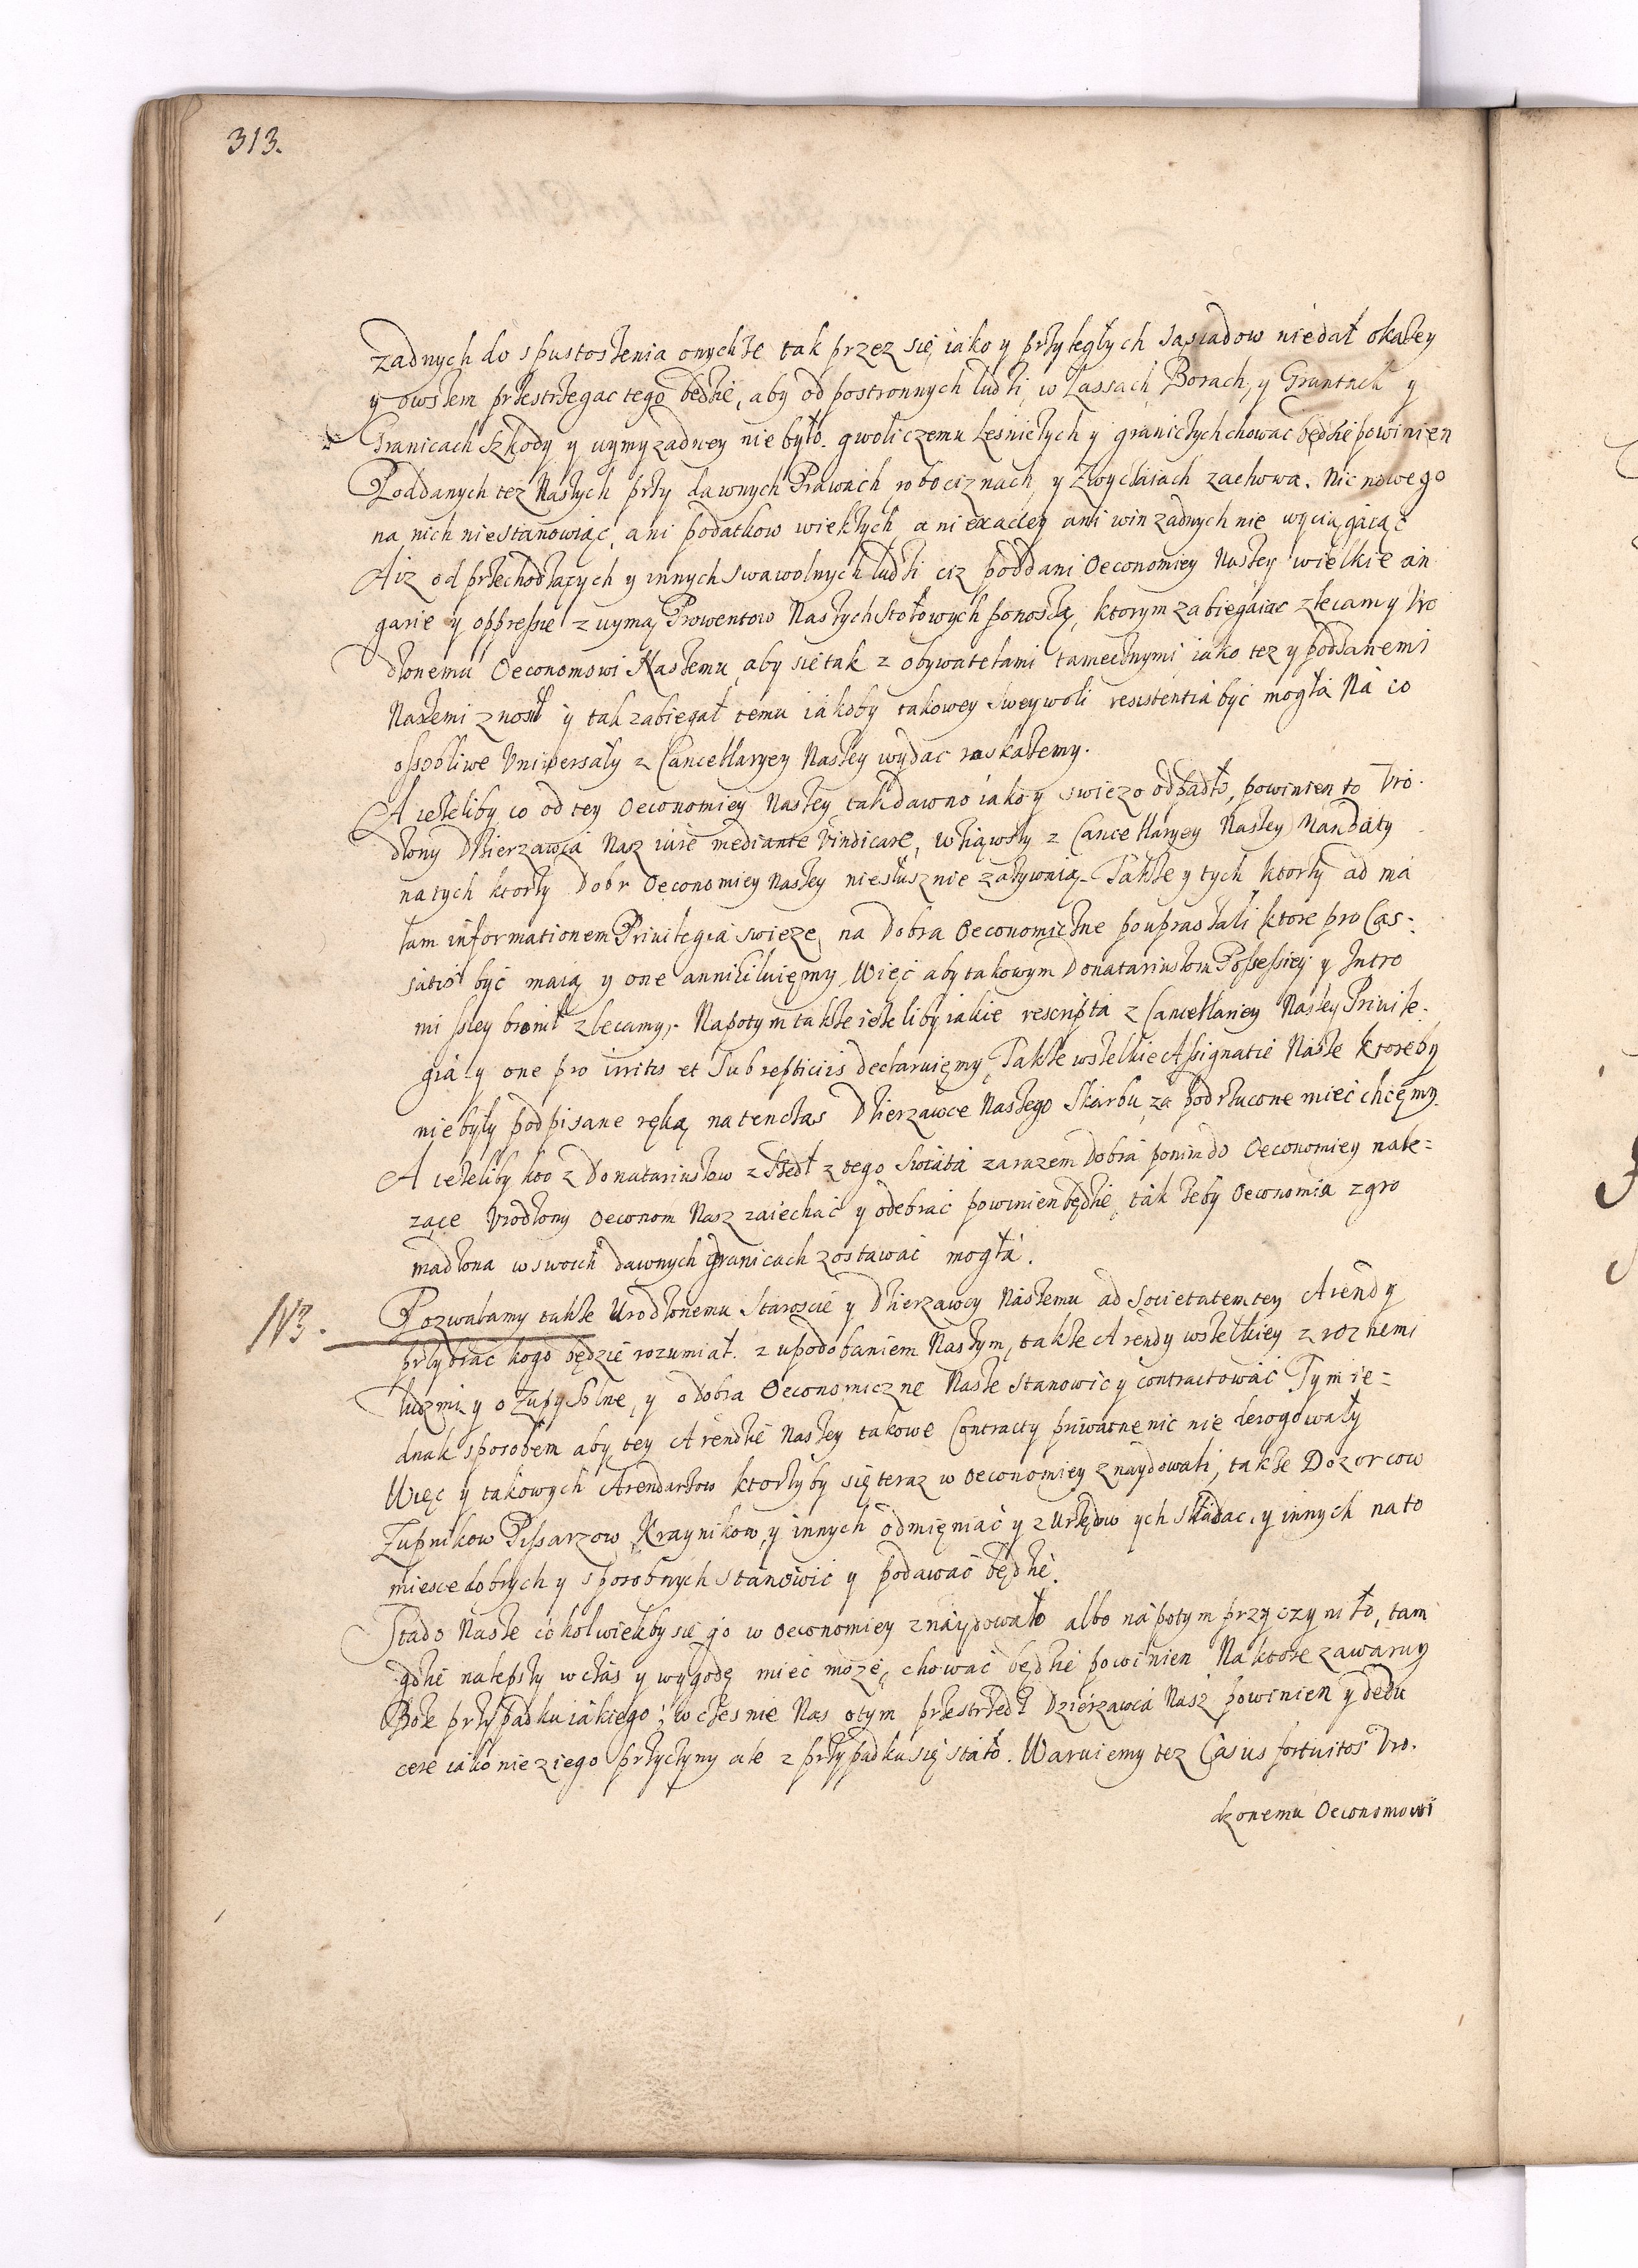 313.
zadnych do spustoszenia onychze tak przez się iako y przyległych sąsiadow niedał okazey
y owszem przestrzegac tego będzie, aby od postronnych ludzi, w Lassach Borach, y Gruntach y
Granicach szkody y uymy zadney nie było. gwoli czemu Lesniczych y graniczych chowac będzie powinien
Poddanych tez Naszych przy dawnych Prawach robociznach, y Zwyczaiach zachowa. Nic nowego
na nich niestanowiąc, ani podatkow wiekszych, ani exactey ani win zadnych nie wyciągáiąc
A iz od przechodzących y innych swawolnych ludzi ciz poddani Oeconomiey Naszey wielkie an
garie y oppressie z uymą Prowentow Naszych Stołowych ponoszą, ktorym zabiegáiac zlecamy Vro
dzonemu Oeconomowi Naszemu, aby się tak z obywatelami tamecznymi iako tez y poddanemi
Naszemi znosił y tak zabiegał temu iakoby takowey swey woli resistentia być mogłá Ná co
ossobliwe Vniwersały z Cancellaryey Naszey wydac roskazemy.
A iezeliby co od tey Oeconomiey Naszey tak dawno iako y swiezo odpadło, powinien to Vro-
dzony Dzierzawca Nasz iure mediante vindicare, wziąwszy z Cancellaryey Naszey Mandaty
na tych ktorzy Dobr Oeconomiey Naszey niesłusznie zazywaią. Takze y tych ktorzy ad ma
lam informationem Priuilegia swieze, na Dobra Oeconomiczne poupraszali ktore pro Cas-
satis być maią y one annihiluięmy. Więc aby takowym Donatariuszom Possessiey y Intro
missiey bronił zlecamy. Napotym takze iezeliby iakie rescripta z Cancellariey Naszey Priuile-
gia y one pro irritis et Subrepticiis declaruięmy, Takze wszelkie Assignatie Násze ktoreby
nie były podpisane ręką na tenczas Dzierzawce Naszego Skarbu, za podrzucone mieć chcęmy.
A iezeliby kto z Donatariuszow zszedł z tego Swiata zarazem Dobra ponim do Oeconomiey nale=
zące Vrodzony Oeconom Nasz zaiechać y odebrać powinien będzie, ták zeby Oeconomia zgro
madzona w swoich dawnych granicach zostawać mogłá.
N3. Pozwalamy takze Urodzonemu Staroscie y Dzierzawcy Nászemu ad Societatem tey Arendy
przybrac kogo będzie rozumiał. z upodobaniem Naszym, takze Arendy wszelkiey z roznemi
ludzmi y o Zupy Solne, y o dobra Oeconomiczne Nasze Stanowic y contractować Tym ie=
dnak sposobem aby tey Arendzie Naszey takowe Contracty priwatne nic nie derogowały
Więc y takowych Arendarzow ktorzyby się teraz w oeconomiey znaydowali, takze Dozorcow
Zupnikow Pissarzow Kraynikow, y innych odmięniać y z Urzędow ych składac, y innych na to
miesce dobrych y sposobnych stanowić y podawać będzie.
Stado Nasze co kolwiekby się go w Oeconomiey znáydowało albo nápotym przyczyniło, tam
gdzie nalepszy wczás y wygodę mieć moze, chować będzie powinien Na ktore zawaruy
Boze przypadku iákiego, w czesnie Nas o tym przestrzedz Dzierzawca Nasz powinien y dedu
cere iáko nie z iego przyczyny ale z przypadku się stáło. Waruiemy tez Casus fortuitos Vro-
dzonemu Oeconomowi